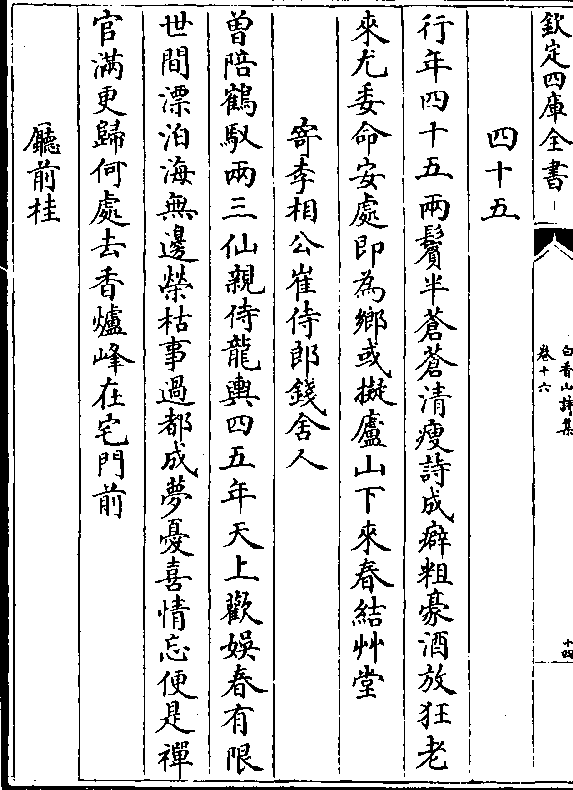 欽定四庫全書
白香山詩集
卷十六
十四
四十五
行年四十五兩鬢半蒼蒼清瘦詩成癖粗豪酒放狂老
來尤委命安處即為鄉或擬廬山下來春結艸堂
寄李相公崔侍郎錢舍人
曽陪鶴馭兩三仙親侍龍輿四五年天上歡娯春有限
世間漂泊海無邊榮枯事過都成夢憂喜情忘便是禪
官滿更歸何處去香爐峰在宅門前
廳前桂